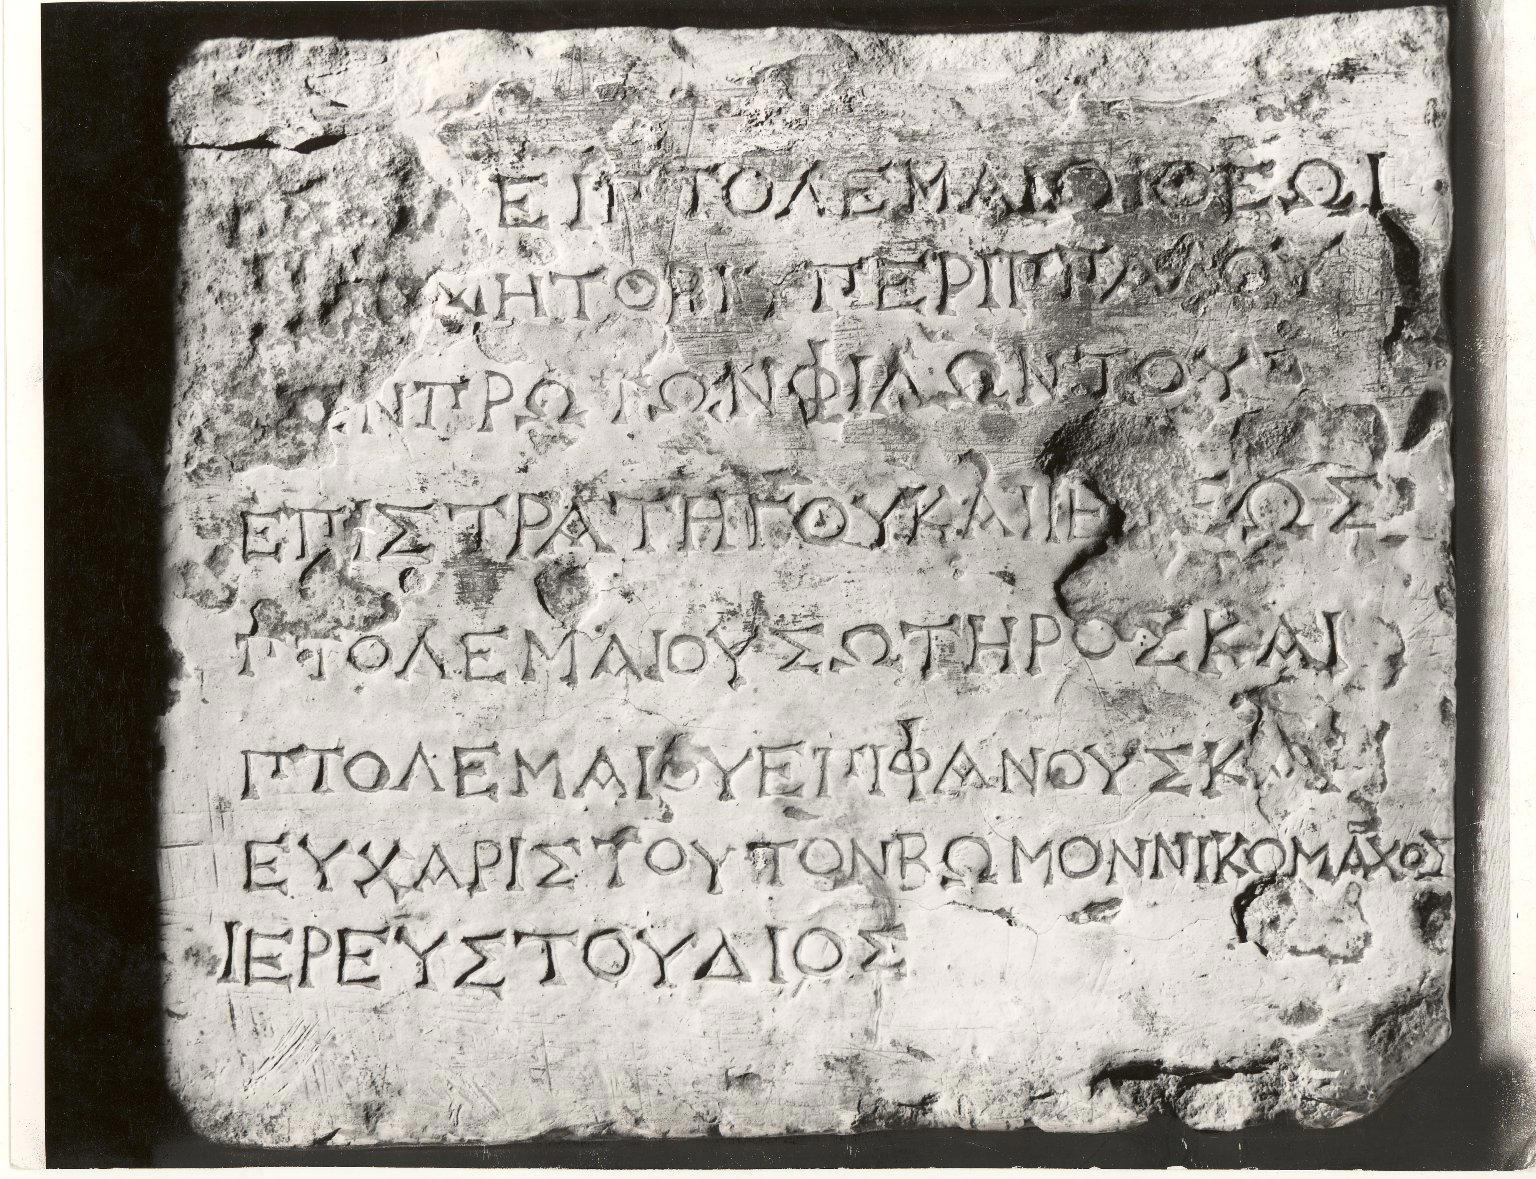 ΕΙΠΤΟΛΕΜΑΙΩΙΘΕΩΙ
ΜΗΤΟΡΙ ΠΕΡΙΤΤΑΛΟΥ
ΝΤΡΩΤΩΝΦΙΛΩΝΤΟΥ
ΕΠΙΣΤΡΑΤΗΓΟΥΚΑΙΙΕ ΕΩΣ
ΠΤΟΛΕΜΑΙΟΥΣΩΤΗΡΟΣΚΑΙ
ΠΤΟΛΕΜΑΙΟΥΕΠΙΦΑΝΟΥΣΚΑΙ
ΕΥΧΑΡΙΣΤΟΥΤΟΝΒΩΜΟΝΝΙΚΟΜΑΧΟΣ
ΙΕΡΕΥΣΤΟΥΔΙΟΣ